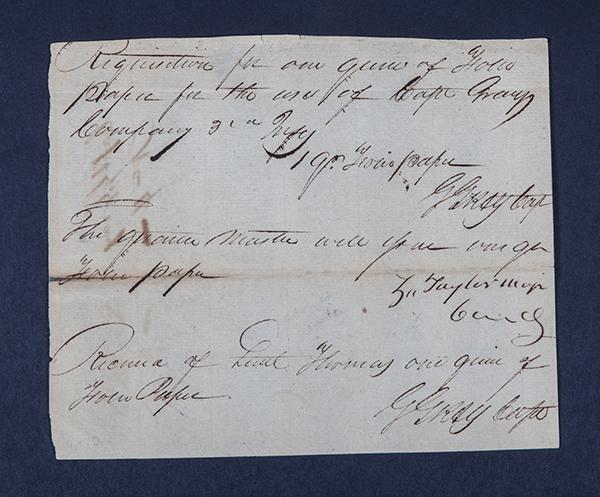 Requisition for one quire of Folio
Paper for the use of Capt Grays
Company 3rd Infy
1 qr. Folio paper
G Gray Capt
The quarter master will issue one qr
Folio paper
Z. Taylor Majr
Comdg
Received of Lieut Thomas one quire of
Folio Paper
G Gray Capt